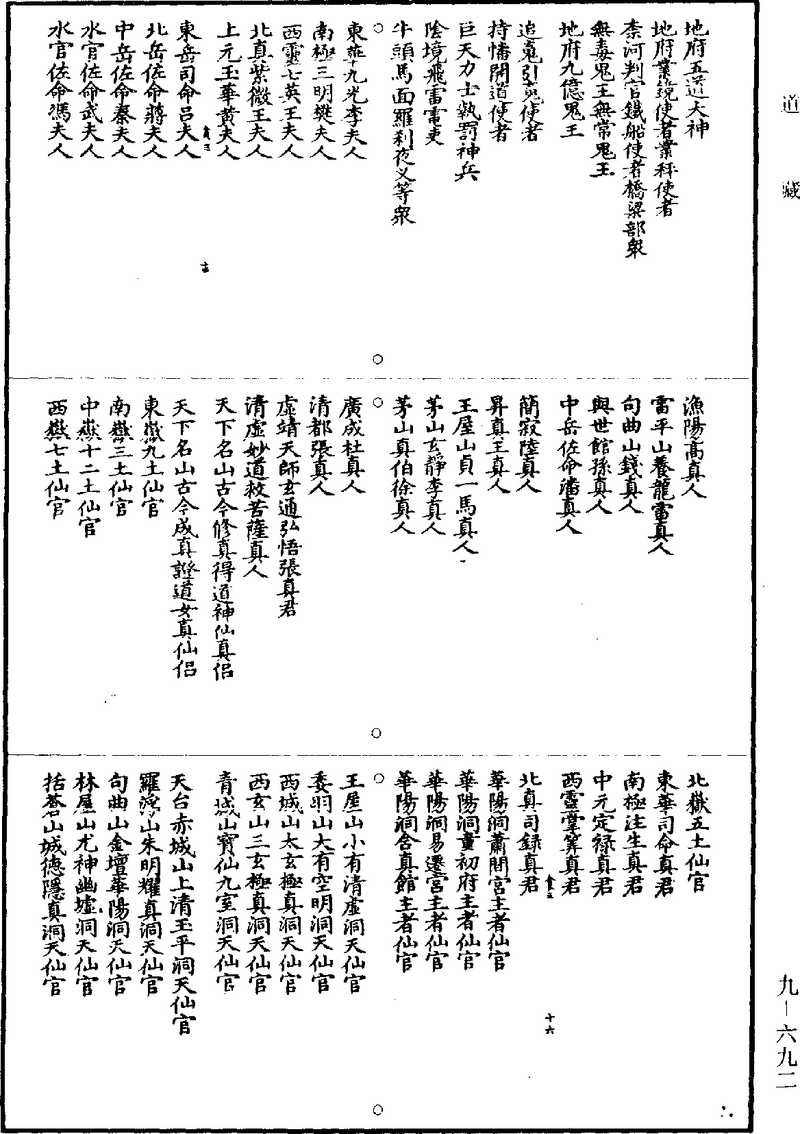 道藏
地府五道大神
地府業鏡使者業秤使者
柰河判官鐵船使者橋梁部衆
無毒鬼王無常鬼王
地府九億鬼王
追魂引魂使者
持幡開道使者
巨天力士執罰神兵
陰境飛雷電吏
牛頭馬面羅刹夜叉等衆
東華九光李夫人
南極三明樊夫人
西靈七英王夫人
北真紫微王夫人
上元玉華黄夫人
東岳司命呂夫人
北岳佐命蔣夫人
中岳佐命秦夫人
水官佐命武夫人
水官佐命馮夫人
漁陽高真人
雷平山養龍雷真人
句曲山錢真人
與世館孫真人
中岳佐命潘真人
簡寂陸真人
昇真王真人
王屋山貞一馬真人
茅山玄靜李真人
茅山真伯徐真人
廣成杜真人
清都張真人
虛靖天師玄通弘悟張真君
清虛妙道救苦薩真人
天下名山古今修真得道神仙真侣
天下名山古今成真證道女真仙侣
東嶽九土仙官
南嶽三土仙官
中嶽十二土仙官
西嶽七土仙官
北嶽五土仙官
東華司命真君
南極注生真君
中元定禄真君
西靈掌筭真君
北真司録真君
十六
華陽洞蕭閒宮主者仙官
華陽洞童初府主者仙官
華陽洞易遷宮主者仙官
華陽洞含真館主者仙官
王屋山小有清虛洞天仙官
委羽山大有空明洞天仙官
西城山太玄極真洞天仙官
西玄山三玄極真洞天仙官
青城山寶仙九室洞天仙官
天台赤城山上清玉平洞天仙官
羅浮山朱明耀真洞天仙官
句曲山金壇華陽洞天仙官
林屋山尤神幽墟洞天仙官
括蒼山城德隱真洞天仙官
九－六九二